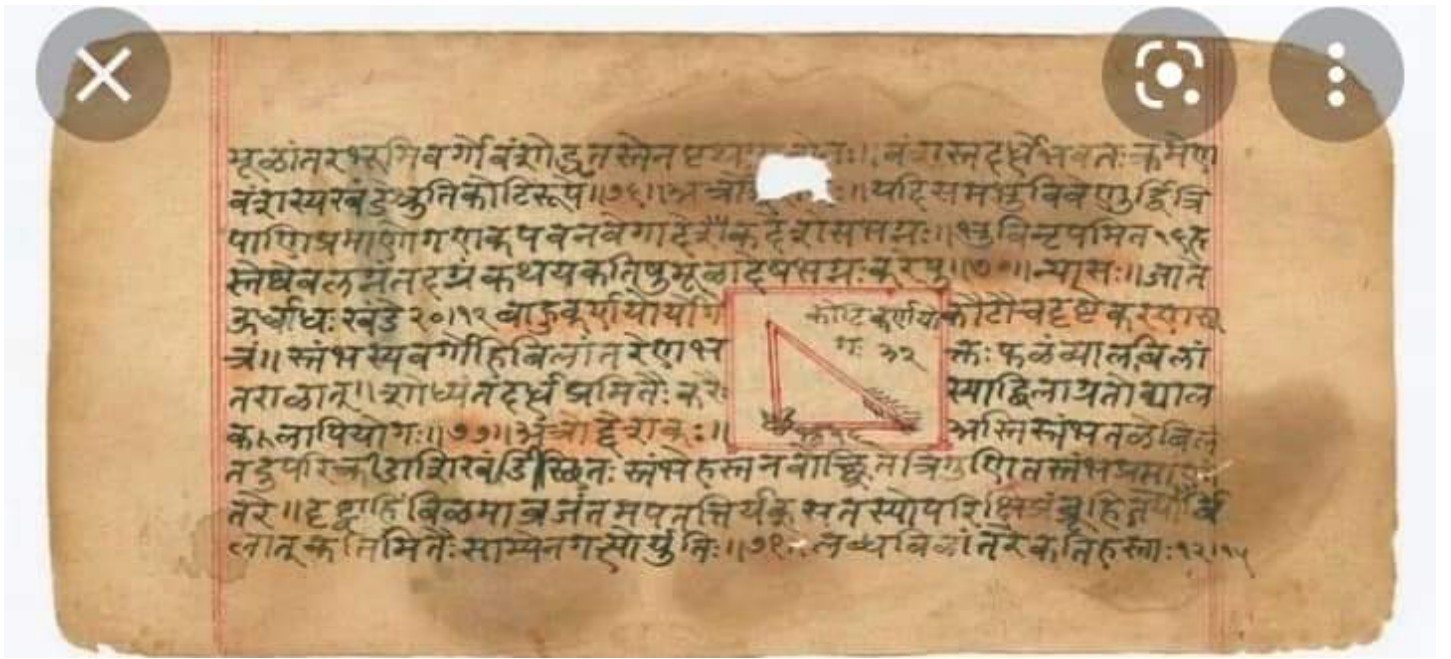 मूळांतरभूमिवर्गो वंशोद्धृतस्तेन पृथ वंशस्तदर्धेभवतः क्रमेण
वंशस्यखंडेश्रुतिकोटिरूपे॥७६॥ यदिसमभुविवेणुर्द्वित्रि
पाणिप्रमाणोगणकपवनवेगादेकदेशेसभग्नः॥भुविनृपमित१६ह
स्तेष्वेवलग्नंतदग्रंकथयकतिषुमूळादेषभग्नःकरेषु॥७०॥न्यासः॥जाते
ऊर्ध्वाधःखंडे२०।१२ कोटिकर्णयो कोटौचदृष्टेकरणसू
त्रं॥स्तंभस्यवर्गोहिबिलांतरेणभ गः ३२ क्तःफळंव्यालबिलां
तराळात्॥शोध्यंतदर्धप्रमितैःकरैः स्याद्बिलाग्रतोव्याल
कलापियोगः॥७७॥अत्रोद्देशकः॥ अस्तिस्तंभतळेबिलं
तदुपरिक्रीडाशिखंडीस्थितःस्तंभेहस्तनवोच्छ्रितेत्रिगुणितस्तंभप्रमाणां
तरे॥दृष्ट्वाहिंबिळमाव्रजंतमपतत्तिर्यक्सतस्योपरिक्षिप्रंब्रूहितयोर्बि
लात्कतिमितैःसाम्येनगत्योर्युतिः॥ बिळांतरेकतिहस्ताः१२।१५